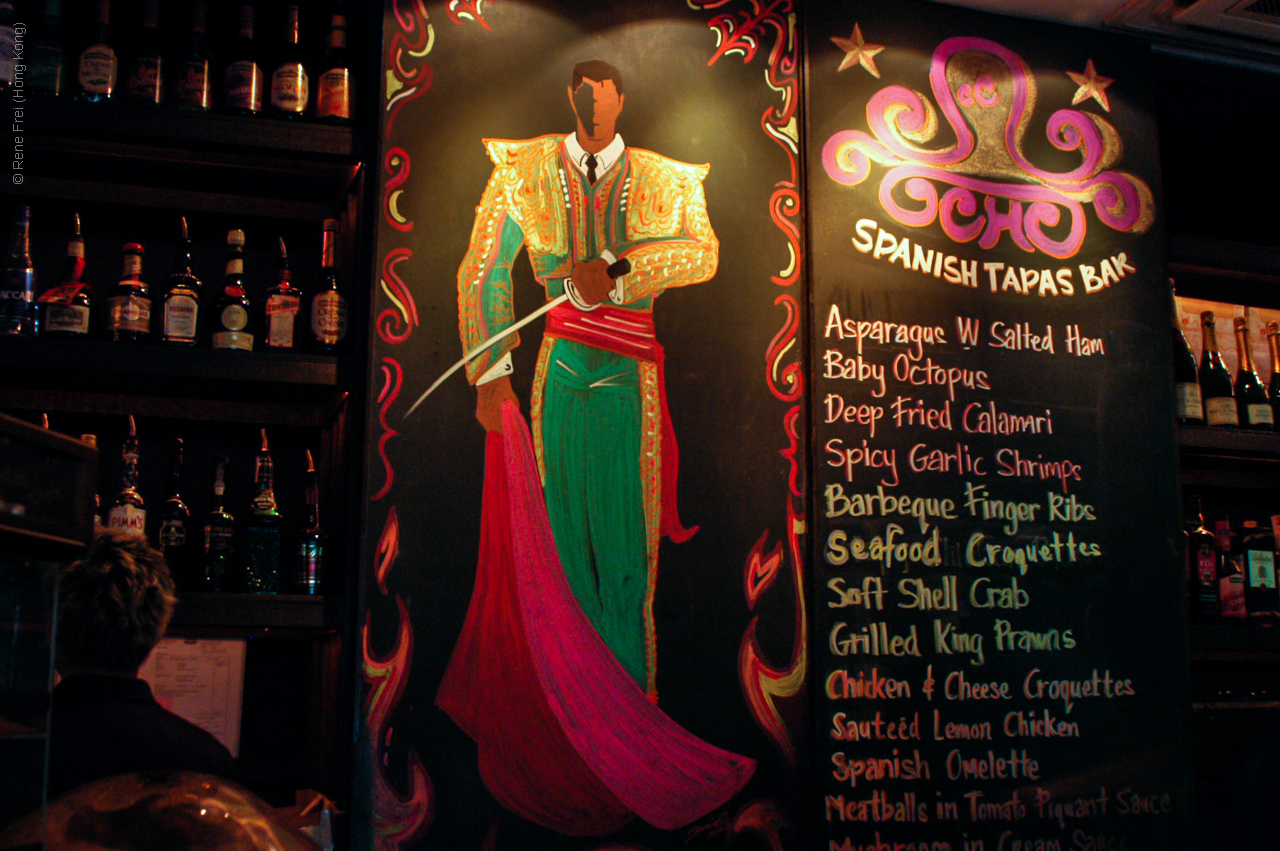 © Rene Frei (Hong Kong)
OCHO
SPANISH TAPAS BAR
Asparagus W Salted Ham
Baby Octopus
Deep Fried Calamari
Spicy Garlic Shrimps
Barbeque Finger Ribs
Seafood Croquettes
Soft Shell Crab
Grilled King Prawns
Chicken & Cheese Croquettes
Sauteéd Lemon Chicken
Spanish Omelette
Meatballs in Tomato Piquant Sauce
Mushroom in Cream Sauce
PIMM'S